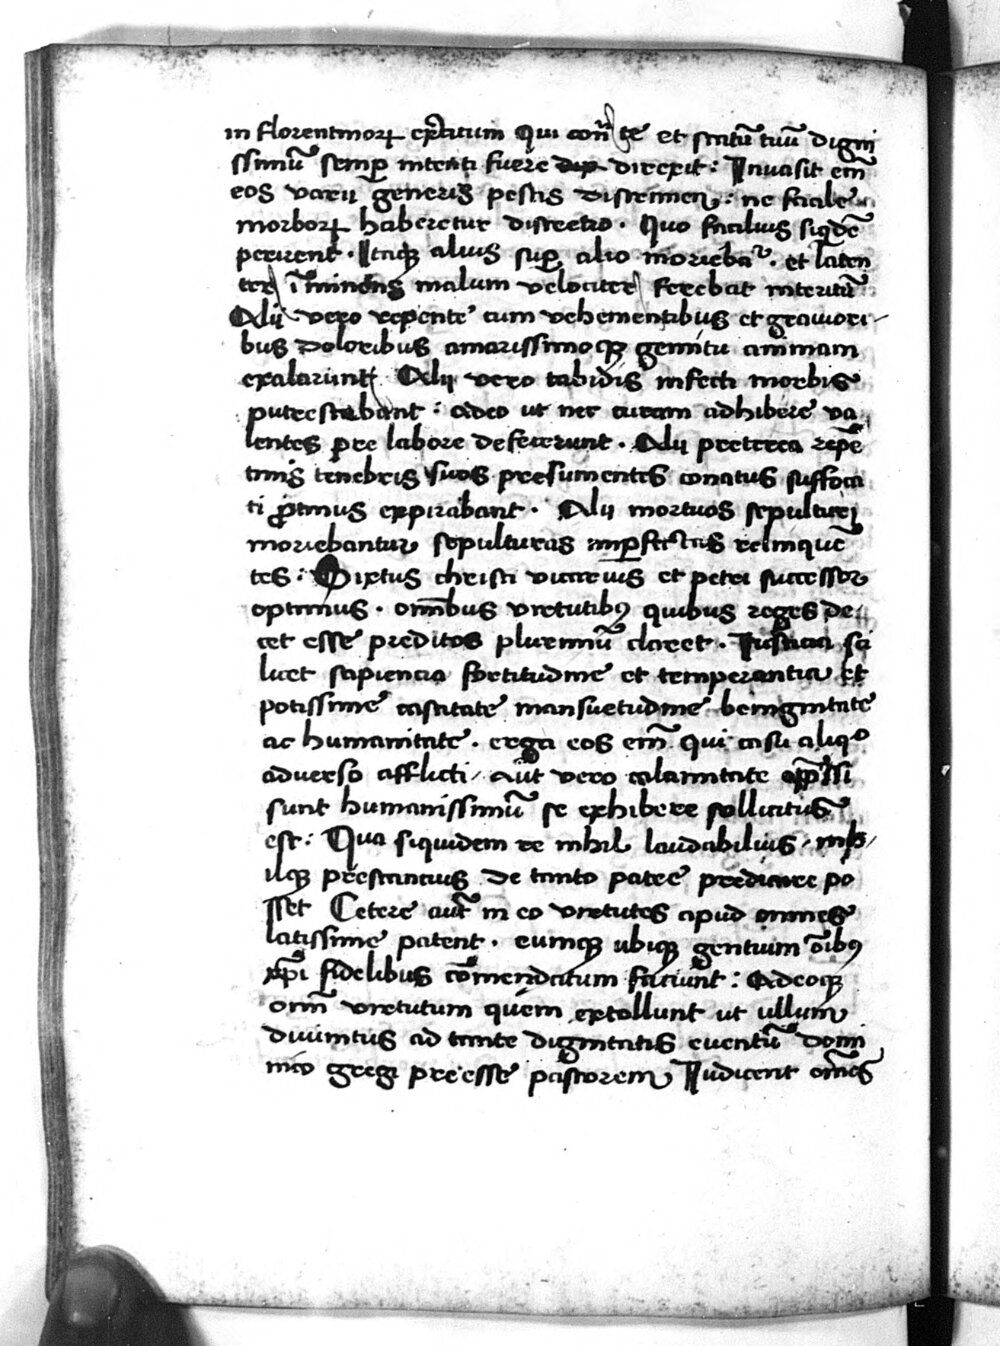 in florentinorꝝ exercitum Qui contͣ te et statū tuū digni
ssimū semꝑ intenti fuere direxit : Inuasit em̄
eos varii generis pestis discrimen : ne facile
morborꝝ haberetur discretio . Quo facilius siqͥdē
perirent . Itaqꝫ alius suꝑ alio morieba᷑ . et laten
ter īminens malum velociter ferebat interitū
Alij vero repente cum vehementibus et grauiori-
bus doloribus amarissimoqꝫ gemitu animam
exalarunt Alij vero tabidis infecti morbis
putrescebant : adeo ut nec curam adhibere va
lentes pre labore defecerunt . Alij preterea repē
tinis tenebris suos presumentes conatus suffoca
ti ꝓtinus expirabant . Alij mortuos sepulturi
moriebantur sepulturas imꝑfectas relinquē
tes : Sixtus christi vicarius et petri successor
optimus . om̄ibus virtutibꝯ quibus reges de-
cet esse preditos plurimū claret . Iusticia sci
licet sapiencia fortitudine et temperantia et
potissime castitate mansuetudine benignitate
ac humanitate . erga eos em̄ qui casu aliqͦ
aduerso afflicti / aut vero calamitate opp̄ssi
sunt humanissimū se exhibere sollicitus
est : Qua siquidem re nihil laudabilius / nih
ilqꝫ prestancius de tanto patre predicare po
sset Cetere aut̄ in eo virtutes apud omnes
latissime patent . eumqꝫ ubiqꝫ gentium ōibꝯ
xp̄i fidelibus cōmendatum faciunt : Adeoqꝫ
om̄ virtutum quem extollunt ut ullum
diuinitus ad tante dignitatis euentū domi
nico gregi preesse pastorem Iudicent om̄es